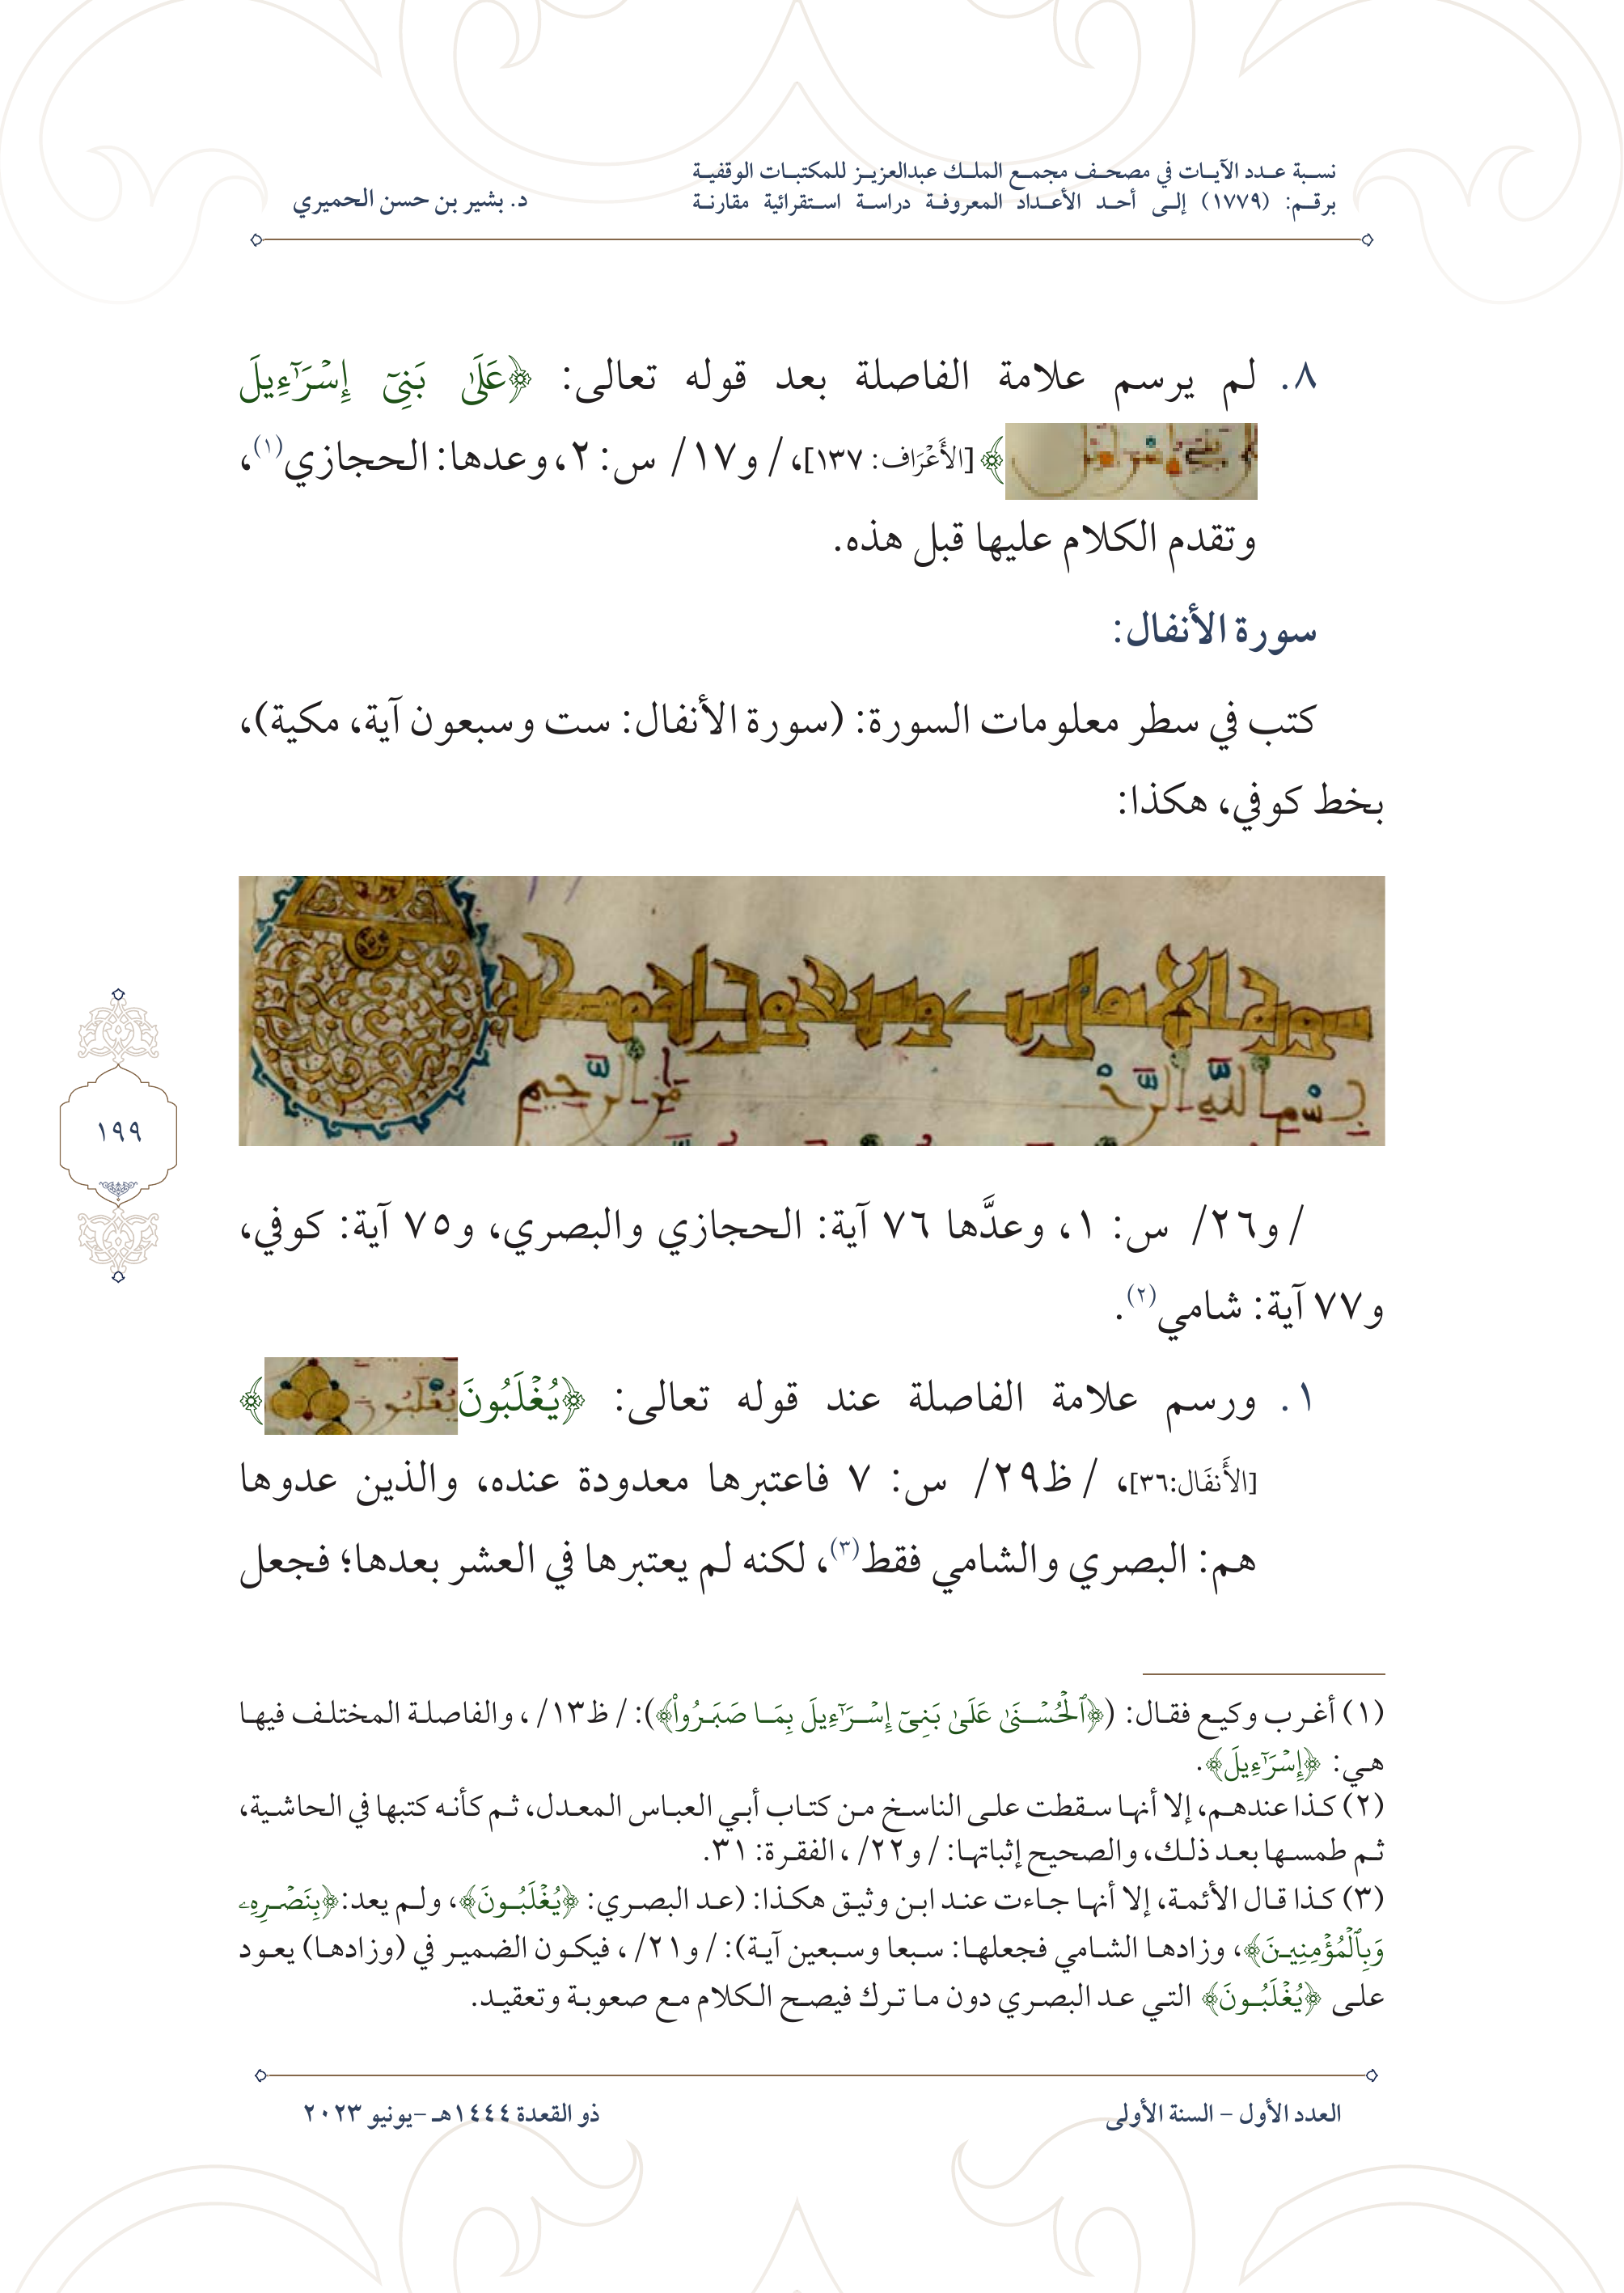 نسبة عدد الآيات في مصحف مجمع الملك عبدالعزيز للمكتبات الوقفية
برقم: (١٧٧٩) إلى أحد الأعداد المعروفة دراسة استقرائية مقارنة
د. بشير بن حسن الحميري
٨. لم يرسم علامة الفاصلة بعد قوله تعالى: ﴿عَلَىٰ بَنِيٓ إِسۡرَٰٓءِيلَ
﴾ [الأَعۡرَاف: ١٣٧]، /و١٧/ س: ٢، وعدها: الحجازي(١)،
وتقدم الكلام عليها قبل هذه.
سورة الأنفال:
كتب في سطر معلومات السورة: (سورة الأنفال: ست وسبعون آية، مكية)،
بخط كوفي، هكذا:
سورة الأنفال ست وسبعون آية مكية
بِسْمِ اللَّهِ الرَّحْمَٰنِ الرَّحِيمِ
١٩٩
/و٢٦/ س: ١، وعدَّها ٧٦ آية: الحجازي والبصري، و٧٥ آية: كوفي،
و٧٧ آية: شامي(٢).
١. ورسم علامة الفاصلة عند قوله تعالى: ﴿يُغۡلَبُونَ يغلبون﴾
[الأَنفَال:٣٦]، /ظ٢٩/ س: ٧ فاعتبرها معدودة عنده، والذين عدوها
هم: البصري والشامي فقط(٣)، لكنه لم يعتبرها في العشر بعدها؛ فجعل
(١) أغرب وكيع فقال: (﴿ٱلۡحُسۡنَىٰ عَلَىٰ بَنِيٓ إِسۡرَٰٓءِيلَ بِمَا صَبَرُواْ﴾): /ظ١٣/، والفاصلة المختلف فيها
هي: ﴿إِسۡرَٰٓءِيلَ﴾.
(٢) كذا عندهم، إلا أنها سقطت على الناسخ من كتاب أبي العباس المعدل، ثم كأنه كتبها في الحاشية،
ثم طمسها بعد ذلك، والصحيح إثباتها: /و٢٢/، الفقرة: ٣١.
(٣) كذا قال الأئمة، إلا أنها جاءت عند ابن وثيق هكذا: (عد البصري: ﴿يُغۡلَبُونَ﴾، ولم يعد:﴿بِنَصۡرِهِۦ
وَبِٱلۡمُؤۡمِنِينَ﴾، وزادها الشامي فجعلها: سبعا وسبعين آية): /و٢١/، فيكون الضمير في (وزادها) يعود
على ﴿يُغۡلَبُونَ﴾ التي عد البصري دون ما ترك فيصح الكلام مع صعوبة وتعقيد.
العدد الأول – السنة الأولى
ذو القعدة ١٤٤٤هـ –يونيو ٢٠٢٣